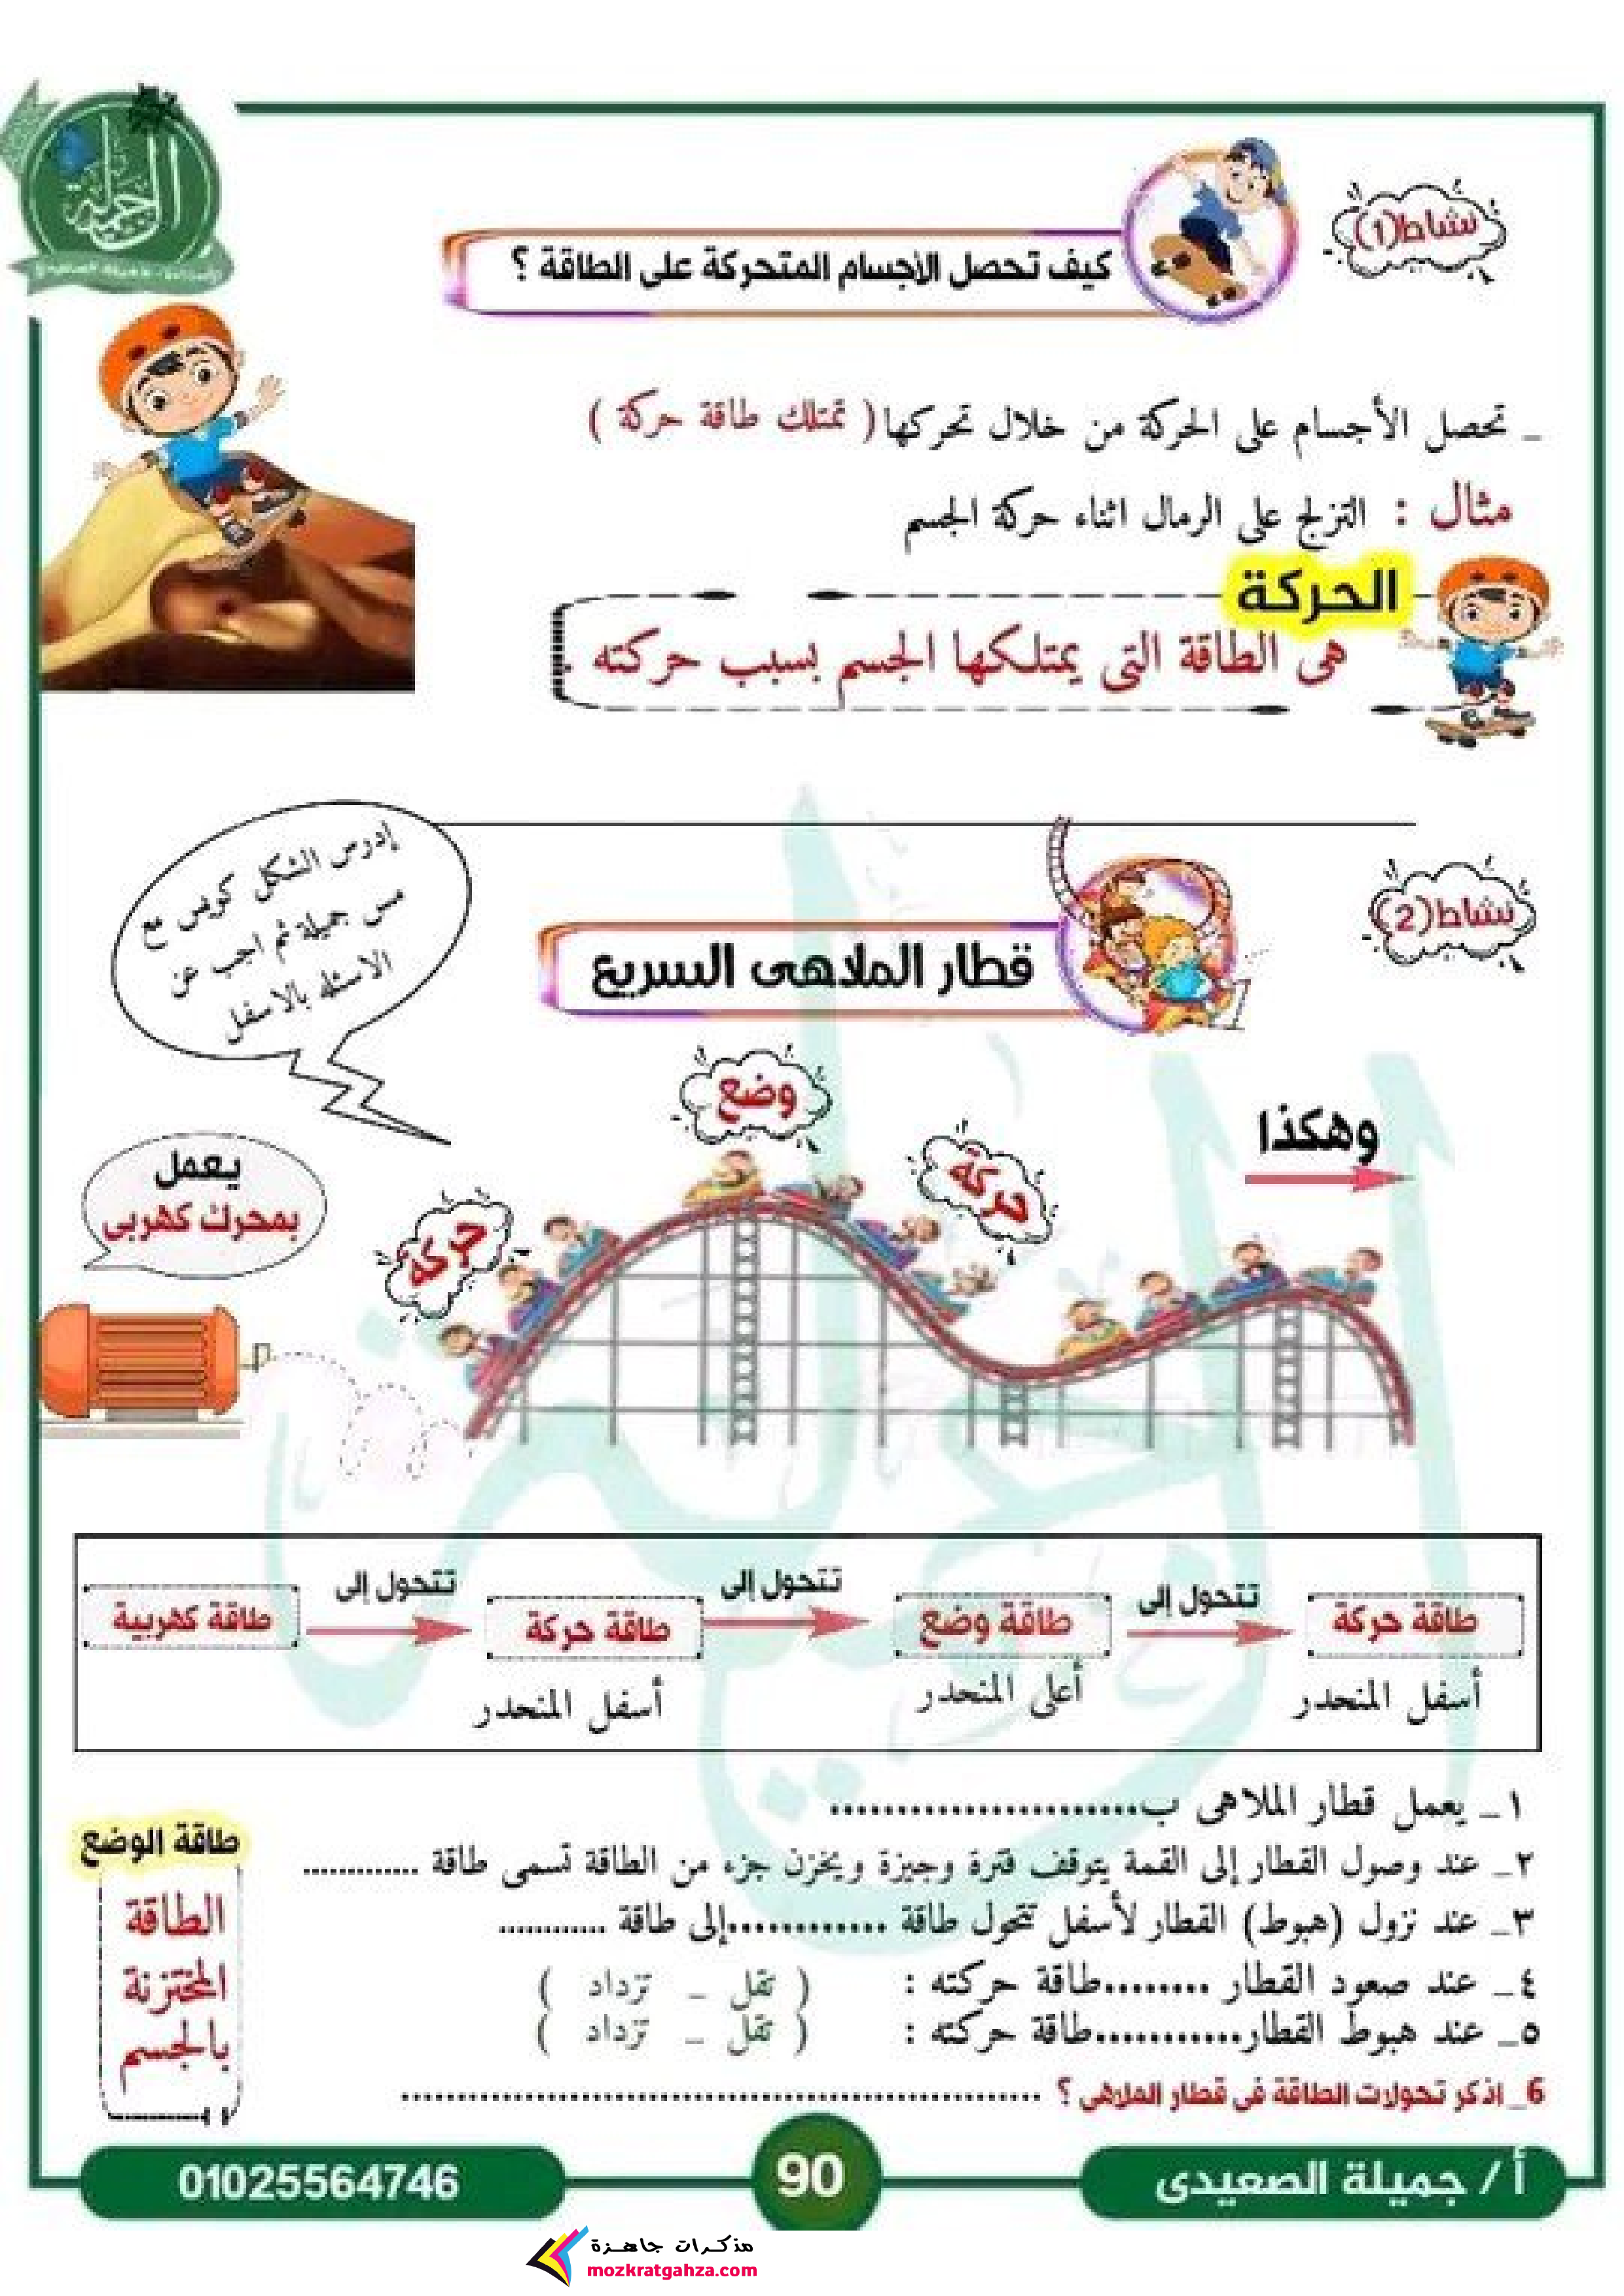 الجميلة
نشاط(1)
كيف تحصل الأجسام المتحركة على الطاقة ؟
_ تحصل الأجسام على الحركة من خلال تحركها ( تمتلك طاقة حركة )
مثال : التزلج على الرمال اثناء حركة الجسم
الحركة
هى الطاقة التى يمتلكها الجسم بسبب حركته
نشاط(2)
قطار الملاهى السريع
إدرس الشكل كويس مع
مس جميلة ثم اجب عن
الاسئله بالاسفل
يعمل
بمحرك كهربى
حركة
وضع
حركة
وهكذا
طاقة كهربية
تتحول إلى
طاقة حركة
أسفل المنحدر
تتحول إلى
طاقة وضع
أعلى المنحدر
تتحول إلى
طاقة حركة
أسفل المنحدر
١_ يعمل قطار الملاهى ب........................
٢_ عند وصول القطار إلى القمة يتوقف فترة وجيزة ويخزن جزء من الطاقة تسمى طاقة .............
٣_ عند نزول (هبوط) القطار لأسفل تتحول طاقة ............إلى طاقة ............
٤_ عند صعود القطار ........طاقة حركته : ( تقل _ تزداد )
٥_ عند هبوط القطار...........طاقة حركته : ( تقل _ تزداد )
6_ اذكر تحولات الطاقة فى قطار الملاهى ؟ ..........................................................
طاقة الوضع
الطاقة
المختزنة
بالجسم
أ / جميلة الصعيدى
90
01025564746
مذكرات جاهزة
mozkratgahza.com